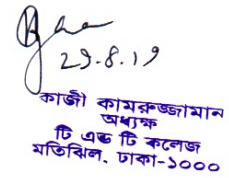 29.8.19
কাজী কামরুজ্জামান
অধ্যক্ষ
টি এন্ড টি কলেজ
মতিঝিল, ঢাকা-১০০০